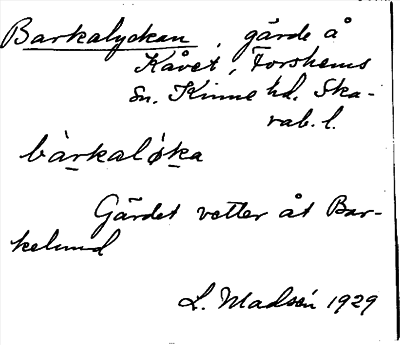 Barkalyckan, gärde å
Kåvet, Forshems
Sn. Kinne hd. Ska-
rab. l.
bàrkaløka
Gärdet vetter åt Bar-
kelund
L. Madsén 1929